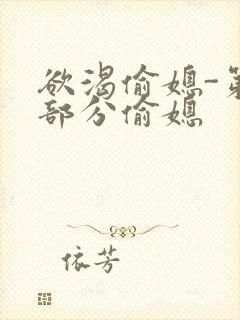 欲渴偷媳-第
部分偷媳
依芳